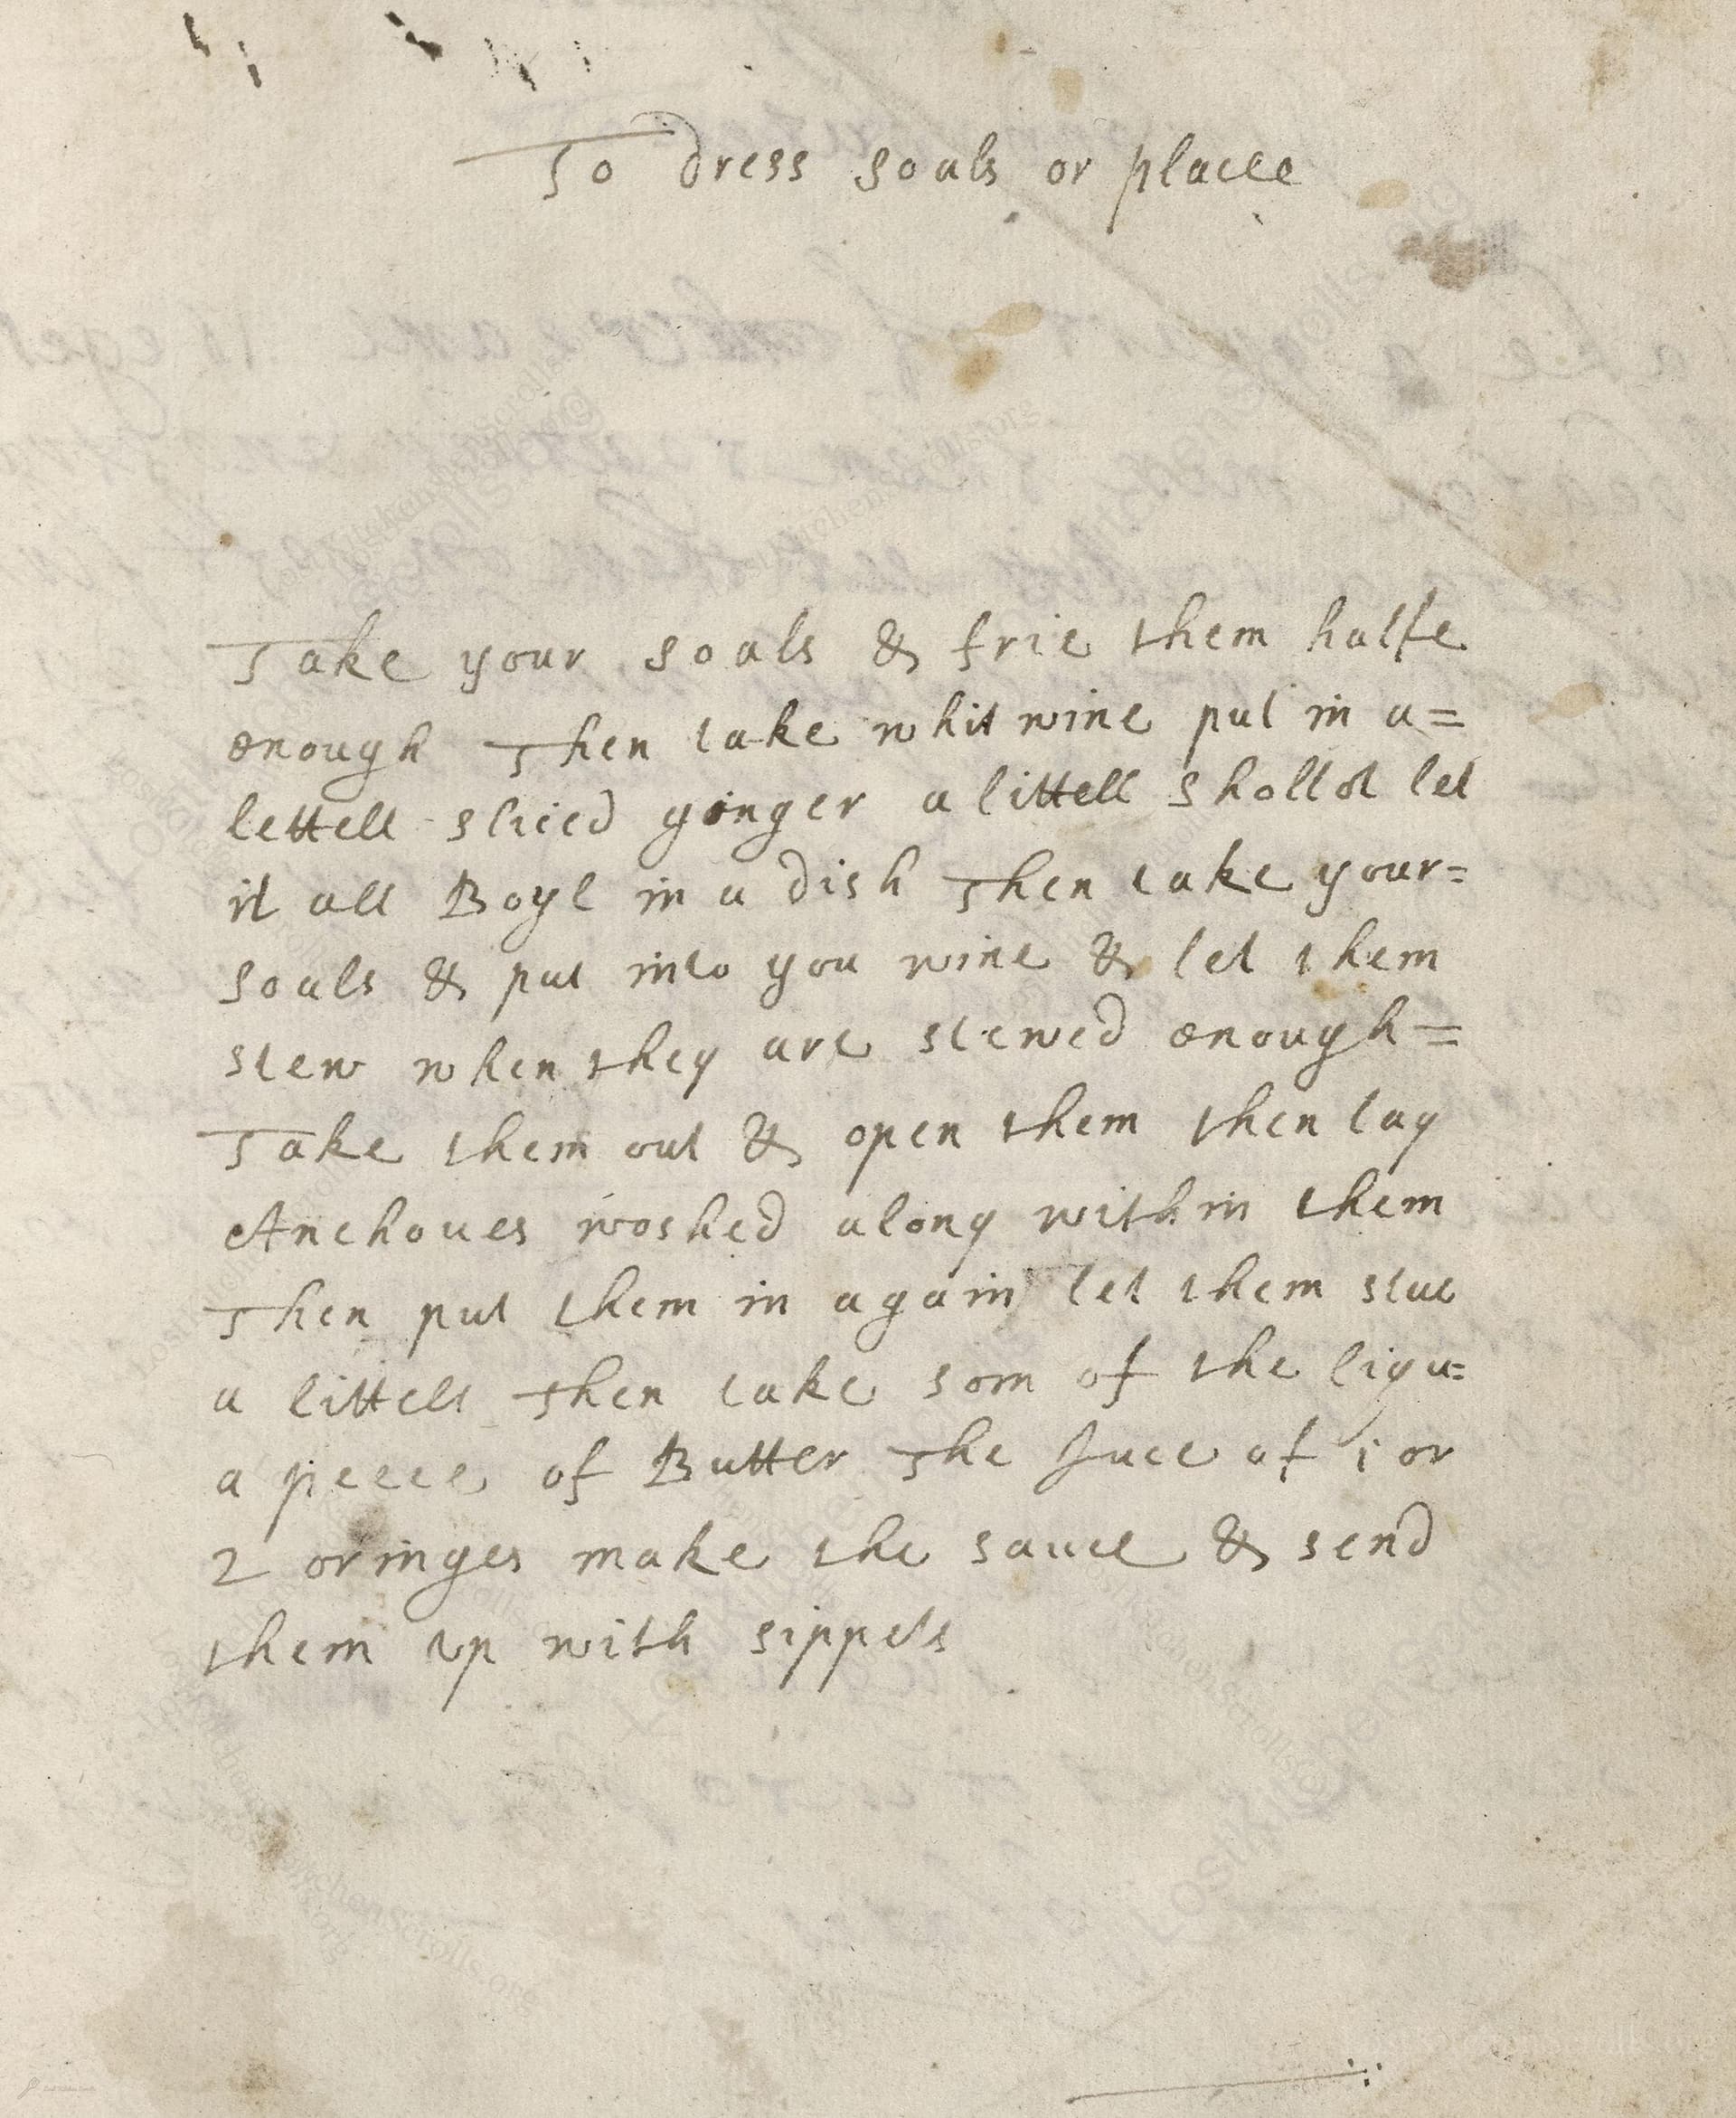 To dress soals or placee
Take your soals & frie them halfe
enough Then take whit wine put in a=
lettell sliced ginger a littell shollot let
it all Boyl in a dish Then take your=
soals & put into you wine & let them
stew when they are stewed enough=
Take them out & open them then lay
Anchoues woshed along within them
Then put them in again let them stue
a littell Then take som of the liqu=
a peece of Butter The Juce of 1 or
2 oringes make the sauce & send
them up with sippets